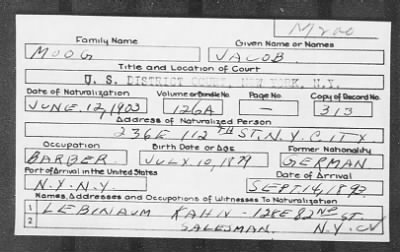 M200
Family Name Given Name or Names
MOOG JACOB
Title and Location of Court
U. S. DISTRICT COURT, NEW YORK, N.Y.
Date of Naturalization Volume or Bundle No. Page No. Copy of Record No.
JUNE. 12, 1903 126A — 313
Address of Naturalized Person
236 E 112TH ST, N.Y. CITY
Occupation Birth Date or Age Former Nationality
BARBER. JULY 10, 1879 GERMAN
Port of Arrival in the United States Date of Arrival
N.Y. N.Y. SEPT. 14, 1892
Names, Addresses and Occupations of Witnesses To Naturalization
1 LEBINAUM KAHN - 128 E 82ND ST.
2 SALESMAN. N.Y.